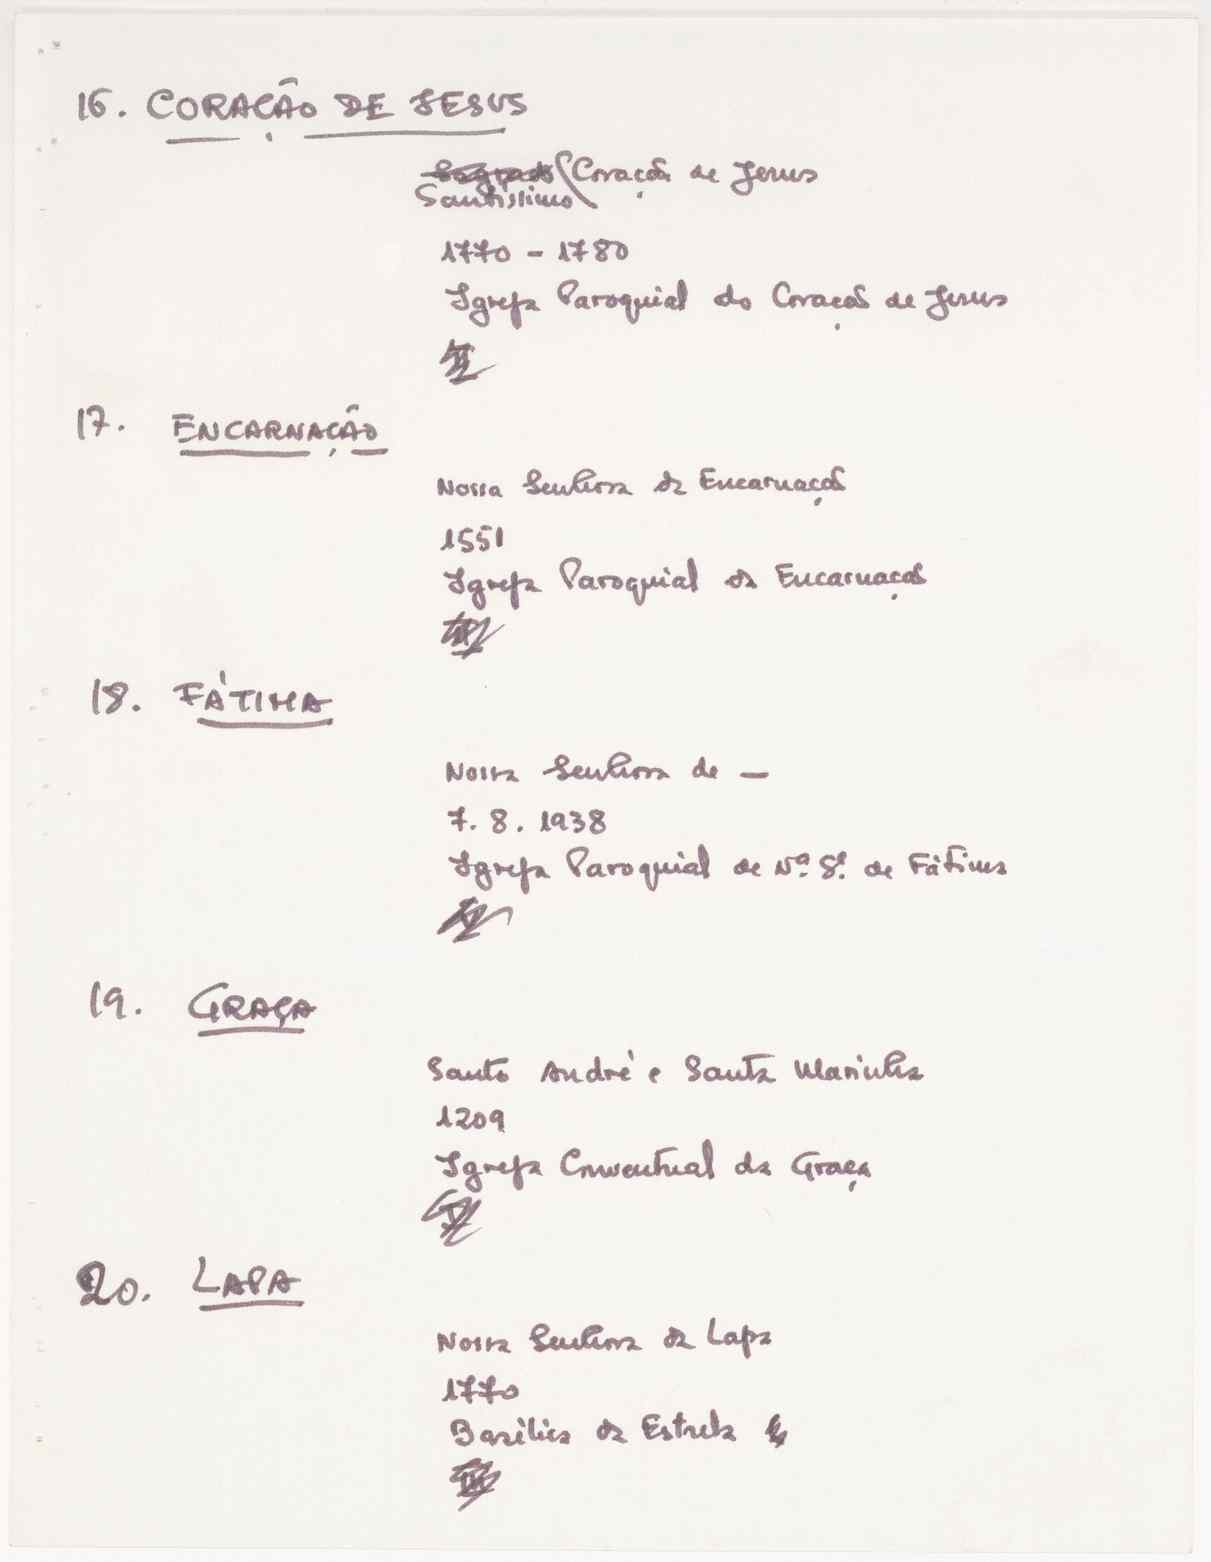 16. CORAÇÃO DE JESUS
Sagrado Coração de Jesus
Santíssimo
1770 - 1780
Igreja Paroquial do Coração de Jesus
17. ENCARNAÇÃO
Nossa Senhora da Encarnação
1551
Igreja Paroquial da Encarnação
18. FÁTIMA
Nossa Senhora de —
7. 8. 1938
Igreja Paroquial de Nª. Sª. de Fátima
19. GRAÇA
Santo André e Santa Marinha
1209
Igreja Conventual da Graça
20. LAPA
Nossa Senhora da Lapa
1770
Basílica da Estrela